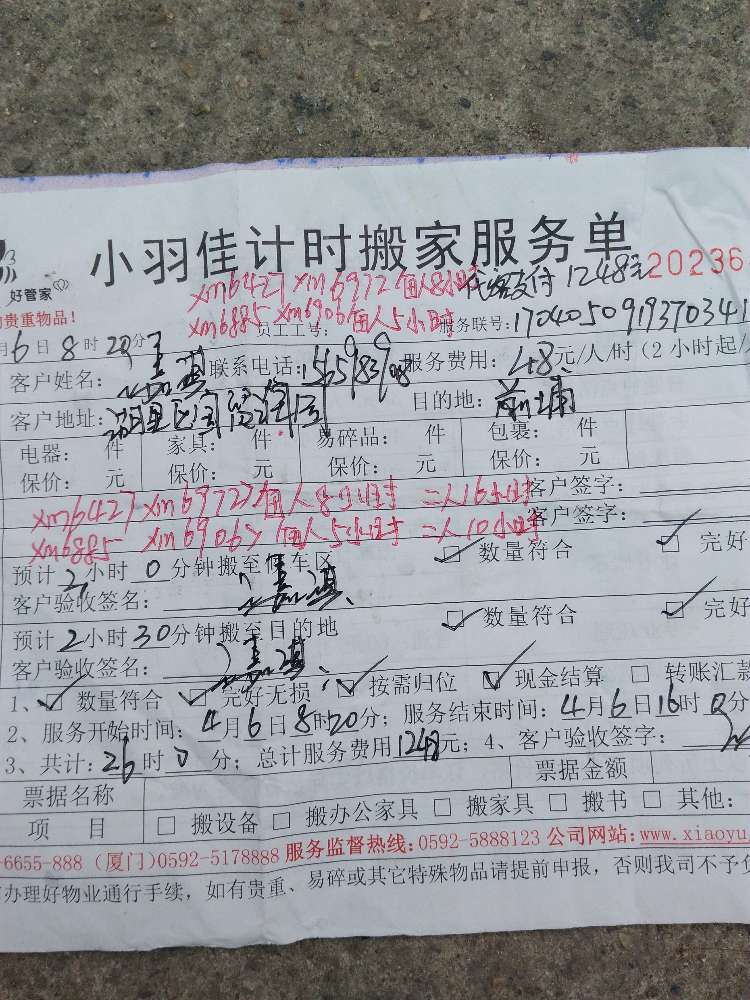 小羽佳计时搬家服务单
好管家
贵重物品！
xm6427 xm6972 2个人8小时 代缴支付1248元 20236
xm6885 xm6906 个人5小时
员工工号： 服务联号：1704050919370341
月6日8时20分
客户姓名： 联系电话： 服务费用：48元/人/时（2小时起/
客户地址：湖里区 目的地：前埔
电器： 件 家具： 件 易碎品： 件 包裹： 件
保价： 元 保价： 元 保价： 元 保价： 元
xm6427 xm6972 2个人8小时 二人16小时 客户签字：
xm6885 xm6906 个人5小时 二人10小时 客户签字：
预计2小时0分钟搬至停车区 数量符合 完好
客户验收签名：
预计2小时30分钟搬至目的地 数量符合 完好
客户验收签名：
1、 数量符合 完好无损 按需归位 现金结算 转账汇款
2、服务开始时间：4月6日8时20分；服务结束时间：4月6日16时0分
3、共计：26时0分；总计服务费用1248元；4、客户验收签字：
票据名称 票据金额
项 目 搬设备 搬办公家具 搬家具 搬书 其他：
-6655-888（厦门）0592-5178888 服务监督热线：0592-5888123 公司网站：www.xiaoyu
办理好物业通行手续，如有贵重、易碎或其它特殊物品请提前申报，否则我司不予